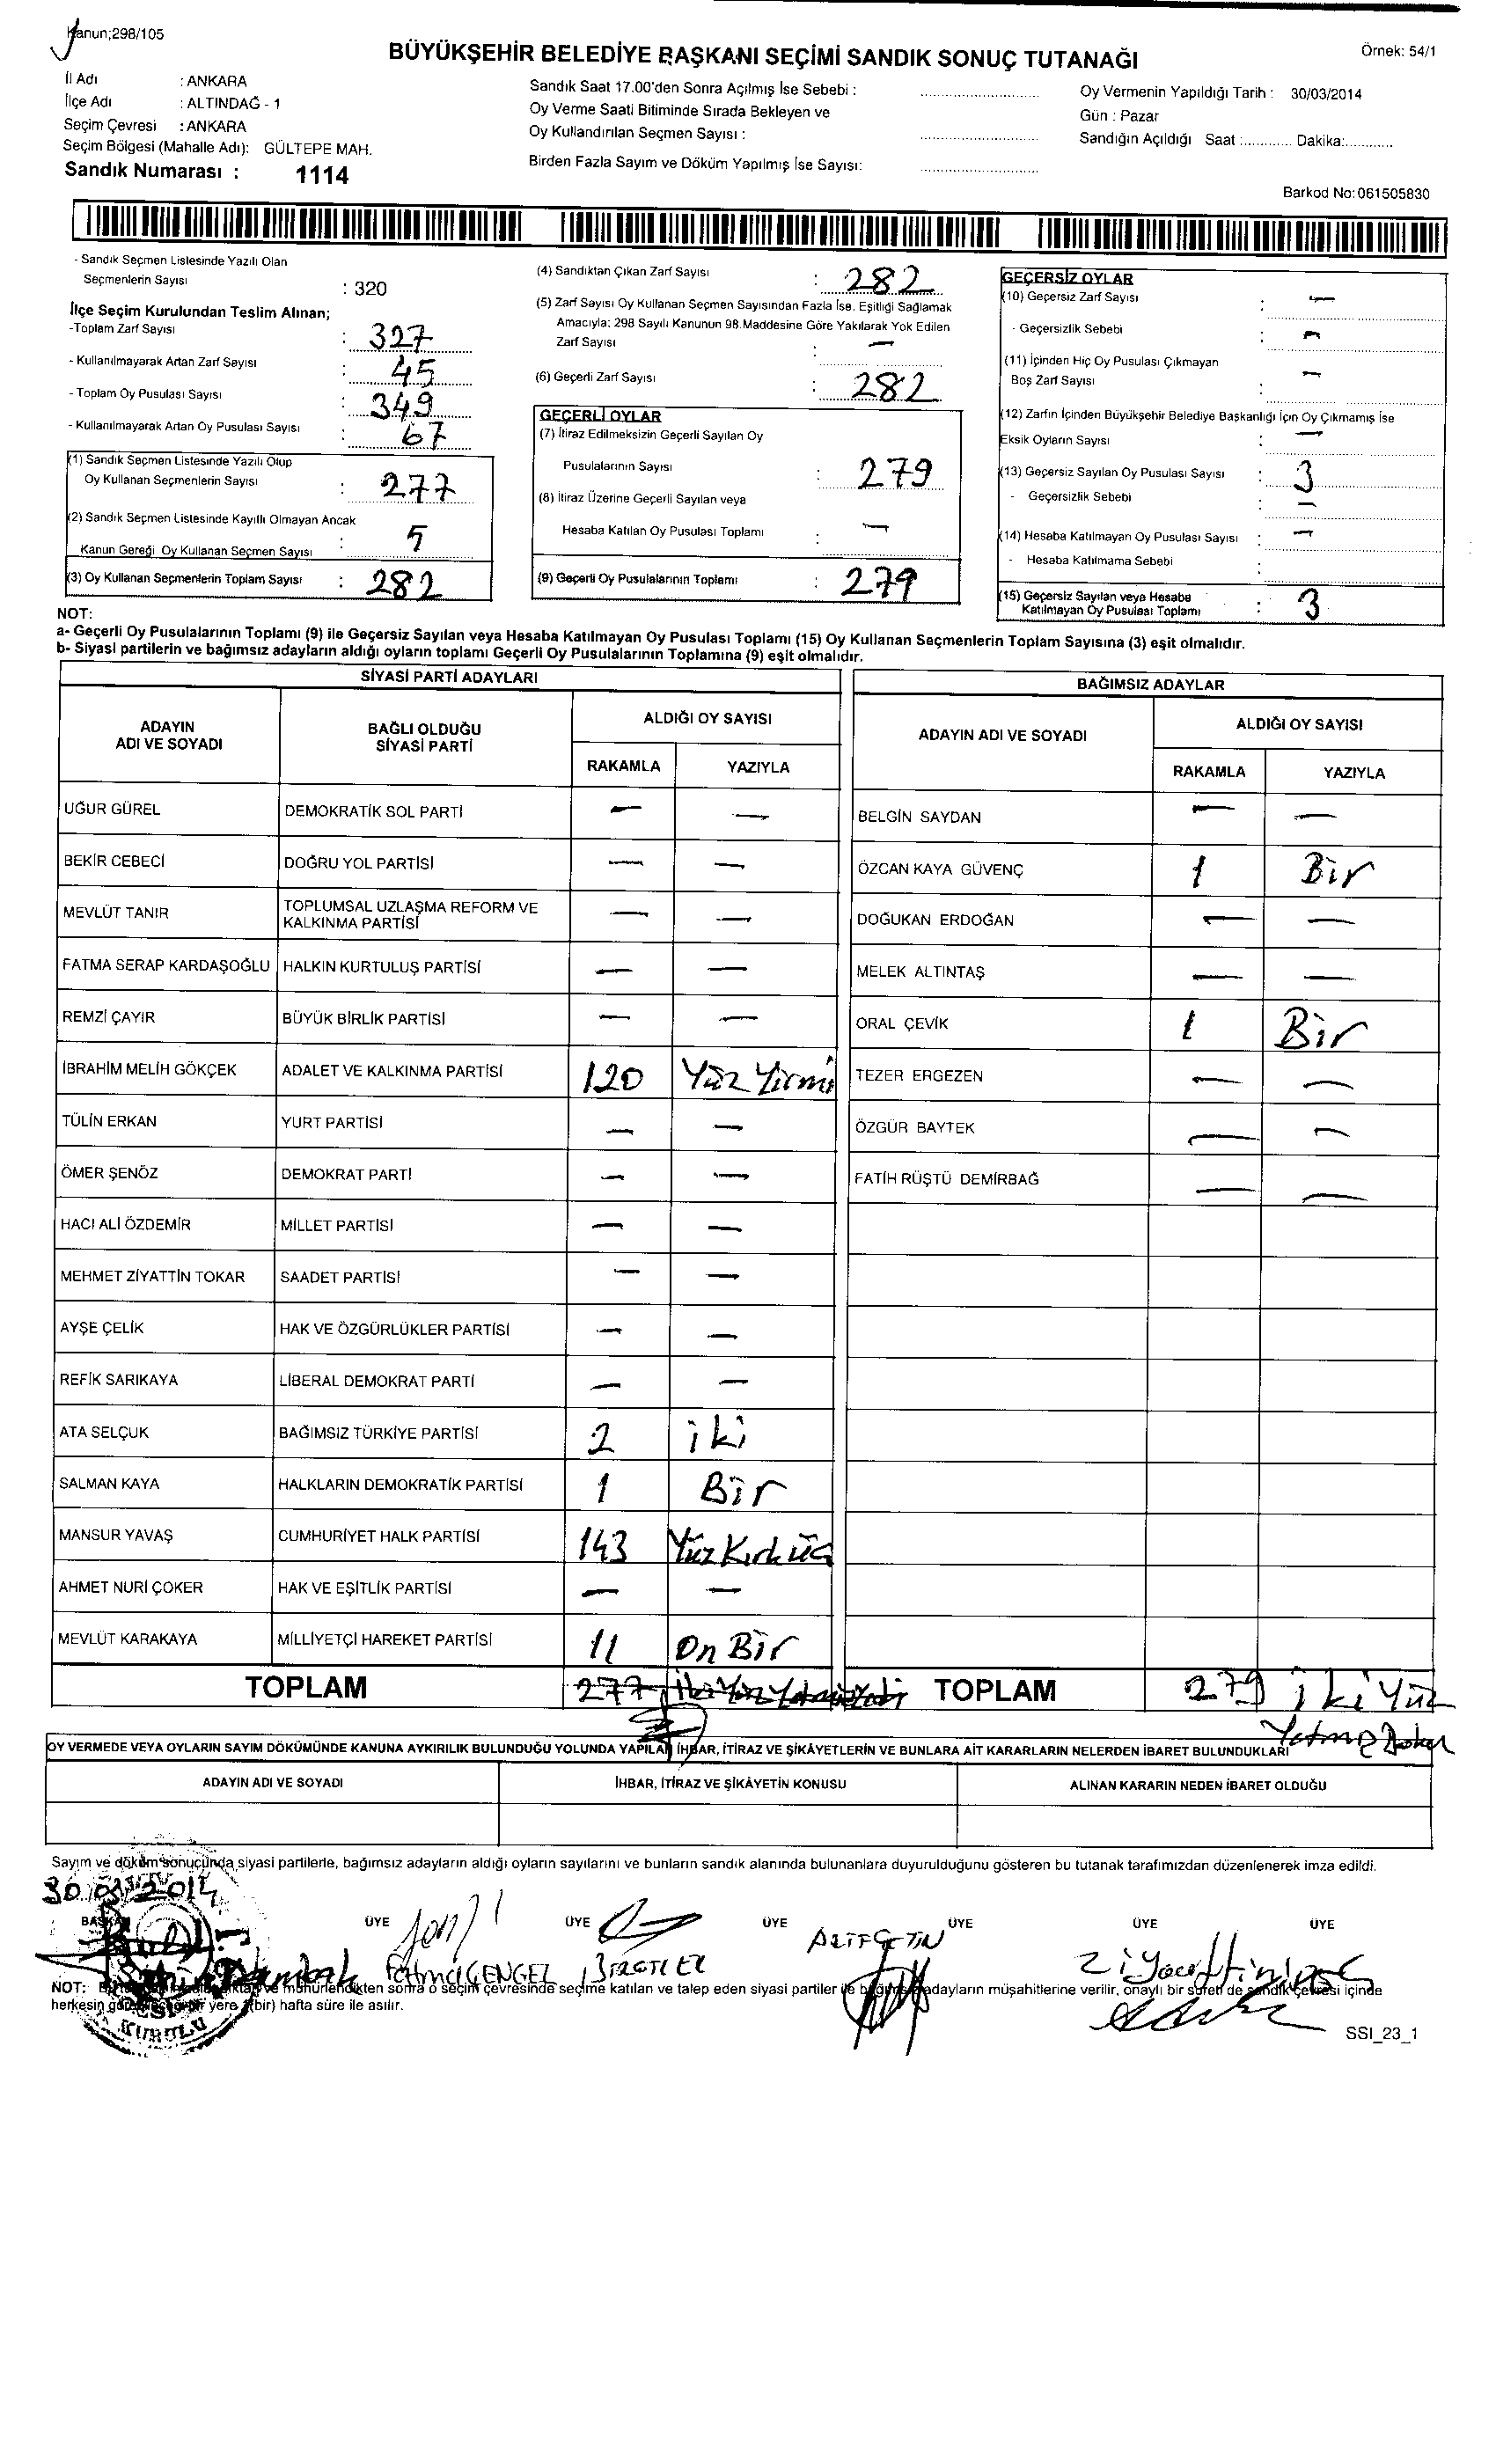 Kanun;298/105
BÜYÜKŞEHİR BELEDİYE BAŞKANI SEÇİMİ SANDIK SONUÇ TUTANAĞI
Örnek: 54/1
İl Adı : ANKARA
İlçe Adı : ALTINDAĞ - 1
Seçim Çevresi : ANKARA
Seçim Bölgesi (Mahalle Adı): GÜLTEPE MAH.
Sandık Numarası : 1114
Sandık Saat 17.00'den Sonra Açılmış İse Sebebi :
Oy Verme Saati Bitiminde Sırada Bekleyen ve
Oy Kullandırılan Seçmen Sayısı :
Birden Fazla Sayım ve Döküm Yapılmış İse Sayısı:
Oy Vermenin Yapıldığı Tarih : 30/03/2014
Gün : Pazar
Sandığın Açıldığı Saat :............. Dakika:............
Barkod No:061505830
- Sandık Seçmen Listesinde Yazılı Olan
Seçmenlerin Sayısı : 320
İlçe Seçim Kurulundan Teslim Alınan;
-Toplam Zarf Sayısı : 327
- Kullanılmayarak Artan Zarf Sayısı : 45
- Toplam Oy Pusulası Sayısı : 349
- Kullanılmayarak Artan Oy Pusulası Sayısı : 67
(1) Sandık Seçmen Listesinde Yazılı Olup
Oy Kullanan Seçmenlerin Sayısı : 277
(2) Sandık Seçmen Listesinde Kayıtlı Olmayan Ancak
Kanun Gereği Oy Kullanan Seçmen Sayısı : 5
(3) Oy Kullanan Seçmenlerin Toplam Sayısı : 282
(4) Sandıktan Çıkan Zarf Sayısı : 282
(5) Zarf Sayısı Oy Kullanan Seçmen Sayısından Fazla İse, Eşitliği Sağlamak
Amacıyla: 298 Sayılı Kanunun 98.Maddesine Göre Yakılarak Yok Edilen
Zarf Sayısı : —
(6) Geçerli Zarf Sayısı : 282
GEÇERLİ OYLAR
(7) İtiraz Edilmeksizin Geçerli Sayılan Oy
Pusulalarının Sayısı : 279
(8) İtiraz Üzerine Geçerli Sayılan veya
Hesaba Katılan Oy Pusulası Toplamı : —
(9) Geçerli Oy Pusulalarının Toplamı : 279
GEÇERSİZ OYLAR
(10) Geçersiz Zarf Sayısı : —
- Geçersizlik Sebebi : —
(11) İçinden Hiç Oy Pusulası Çıkmayan
Boş Zarf Sayısı : —
(12) Zarfın İçinden Büyükşehir Belediye Başkanlığı İçin Oy Çıkmamış İse
Eksik Oyların Sayısı : —
(13) Geçersiz Sayılan Oy Pusulası Sayısı : 3
- Geçersizlik Sebebi : —
(14) Hesaba Katılmayan Oy Pusulası Sayısı : —
- Hesaba Katılmama Sebebi :
(15) Geçersiz Sayılan veya Hesaba
Katılmayan Oy Pusulası Toplamı : 3
NOT:
a- Geçerli Oy Pusulalarının Toplamı (9) ile Geçersiz Sayılan veya Hesaba Katılmayan Oy Pusulası Toplamı (15) Oy Kullanan Seçmenlerin Toplam Sayısına (3) eşit olmalıdır.
b- Siyasi partilerin ve bağımsız adayların aldığı oyların toplamı Geçerli Oy Pusulalarının Toplamına (9) eşit olmalıdır.
SİYASİ PARTİ ADAYLARI
ADAYIN ADI VE SOYADI
BAĞLI OLDUĞU SİYASİ PARTİ
ALDIĞI OY SAYISI
RAKAMLA YAZIYLA
UĞUR GÜREL DEMOKRATİK SOL PARTİ — —
BEKİR CEBECİ DOĞRU YOL PARTİSİ — —
MEVLÜT TANIR TOPLUMSAL UZLAŞMA REFORM VE KALKINMA PARTİSİ — —
FATMA SERAP KARDAŞOĞLU HALKIN KURTULUŞ PARTİSİ — —
REMZİ ÇAYIR BÜYÜK BİRLİK PARTİSİ — —
İBRAHİM MELİH GÖKÇEK ADALET VE KALKINMA PARTİSİ 120 Yüz Yirmi
TÜLİN ERKAN YURT PARTİSİ — —
ÖMER ŞENÖZ DEMOKRAT PARTİ — —
HACI ALİ ÖZDEMİR MİLLET PARTİSİ — —
MEHMET ZİYATTİN TOKAR SAADET PARTİSİ — —
AYŞE ÇELİK HAK VE ÖZGÜRLÜKLER PARTİSİ — —
REFİK SARIKAYA LİBERAL DEMOKRAT PARTİ — —
ATA SELÇUK BAĞIMSIZ TÜRKİYE PARTİSİ 2 iki
SALMAN KAYA HALKLARIN DEMOKRATİK PARTİSİ 1 Bir
MANSUR YAVAŞ CUMHURİYET HALK PARTİSİ 143 Yüz Kırk üç
AHMET NURİ ÇOKER HAK VE EŞİTLİK PARTİSİ — —
MEVLÜT KARAKAYA MİLLİYETÇİ HAREKET PARTİSİ 11 On Bir
TOPLAM 277
BAĞIMSIZ ADAYLAR
ADAYIN ADI VE SOYADI
ALDIĞI OY SAYISI
RAKAMLA YAZIYLA
BELGİN SAYDAN — —
ÖZCAN KAYA GÜVENÇ 1 Bir
DOĞUKAN ERDOĞAN — —
MELEK ALTINTAŞ — —
ORAL ÇEVİK 1 Bir
TEZER ERGEZEN — —
ÖZGÜR BAYTEK — —
FATİH RÜŞTÜ DEMİRBAĞ — —
TOPLAM 279 iki Yüz
OY VERMEDE VEYA OYLARIN SAYIM DÖKÜMÜNDE KANUNA AYKIRILIK BULUNDUĞU YOLUNDA YAPILAN İHBAR, İTİRAZ VE ŞİKÂYETLERİN VE BUNLARA AİT KARARLARIN NELERDEN İBARET BULUNDUKLARI
ADAYIN ADI VE SOYADI
İHBAR, İTİRAZ VE ŞİKÂYETİN KONUSU
ALINAN KARARIN NEDEN İBARET OLDUĞU
Sayım ve döküm sonucunda siyasi partilerle, bağımsız adayların aldığı oyların sayılarını ve bunların sandık alanında bulunanlara duyurulduğunu gösteren bu tutanak tarafımızdan düzenlenerek imza edildi.
30.03.2014
BAŞKAN ÜYE ÜYE ÜYE ÜYE ÜYE ÜYE
Fatma ÇENGEL
NOT: mühürlendikten sonra o seçim çevresinde seçime katılan ve talep eden siyasi partiler ile bağımsız adayların müşahitlerine verilir, onaylı bir sureti de sandık çevresi içinde
herkesin yere (bir) hafta süre ile asılır.
KURULU
SSI_23_1